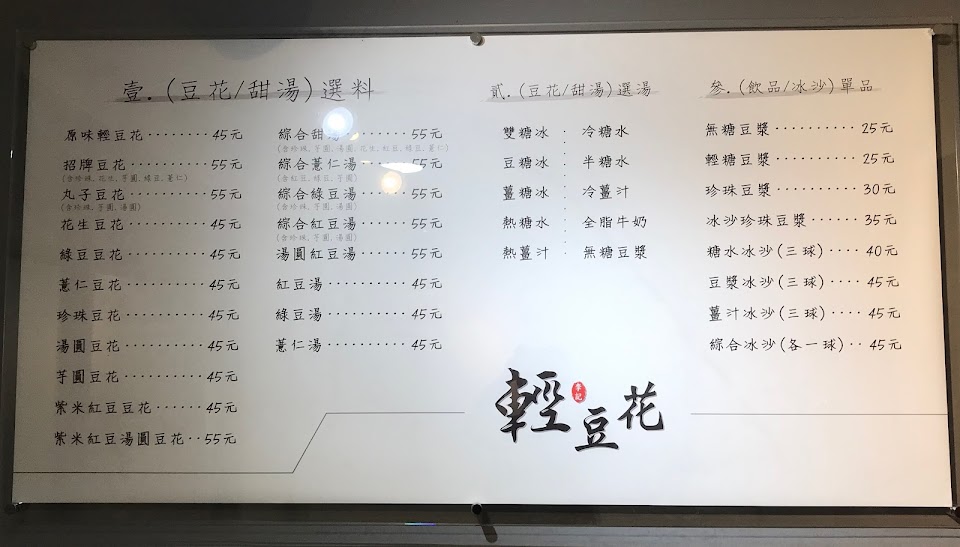 壹.(豆花/甜湯)選料
原味輕豆花········45元
招牌豆花·········55元
(含珍珠、花生、芋圓、綠豆、薏仁)
丸子豆花·········55元
(含珍珠、芋圓、湯圓)
花生豆花·········45元
綠豆豆花·········45元
薏仁豆花·········45元
珍珠豆花·········45元
湯圓豆花·········45元
芋圓豆花·········45元
紫米紅豆豆花······45元
紫米紅豆湯圓豆花··55元
綜合甜 ······55元
(含珍珠、芋圓、湯圓、花生、紅豆、綠豆、薏仁)
綜合薏仁湯 ·····55元
(含紅豆、綠豆、芋圓)
綜合綠豆湯·······55元
(含珍珠、芋圓、湯圓)
綜合紅豆湯·······55元
(含珍珠、芋圓、湯圓)
湯圓紅豆湯·······55元
紅豆湯··········45元
綠豆湯··········45元
薏仁湯··········45元
貳.(豆花/甜湯)選湯
雙糖冰 : 冷糖水
豆糖冰 : 半糖水
薑糖冰 : 冷薑汁
熱糖水 : 全脂牛奶
熱薑汁 : 無糖豆漿
參.(飲品/冰沙)單品
無糖豆漿··········25元
輕糖豆漿··········25元
珍珠豆漿··········30元
冰沙珍珠豆漿······35元
糖水冰沙(三球)····40元
豆漿冰沙(三球)····45元
薑汁冰沙(三球)····45元
綜合冰沙(各一球)··45元
輕豆花
李記